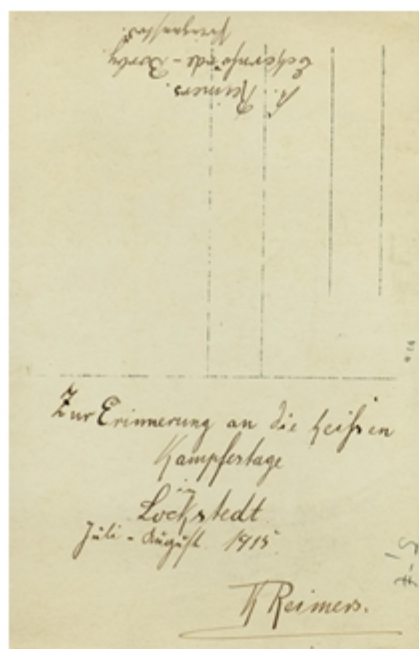 Reimers.
Eckernförde - Borby
Zur Erinnerung an die heißen
Kampfestage
in
Lockstedt
Juli - August. 1915.
K Reimers.